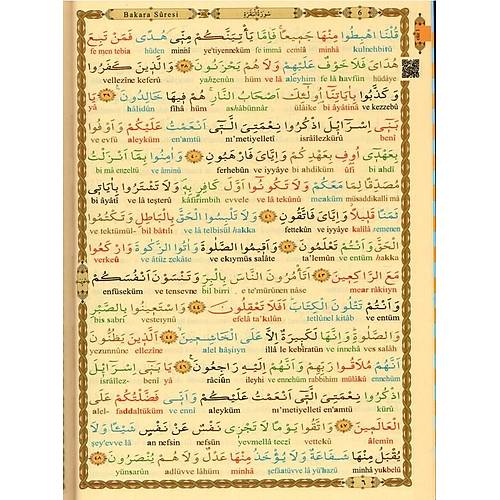 Bakara Sûresi سورة البقرة 6
قُلْنَا اهْبِطُوا مِنْهَا جَمِيعًا فَاِمَّا يَأْتِيَنَّكُمْ مِنّ۪ى هُدًى فَمَنْ تَبِعَ
fe men tebia hüden minnî ye'tiyenneküm fe immâ cemîâ minhâ kulnehbitû
هُدَاىَ فَلَا خَوْفٌ عَلَيْهِمْ وَلَا هُمْ يَحْزَنُونَ ﴿٣٨﴾ وَالَّذ۪ينَ كَفَرُوا
vellezîne keferû yahzenûn hüm ve lâ aleyhim fe lâ havfün hüdâye
وَ كَذَّبُوا بِاٰيَاتِنَا اُولٰٓئِكَ اَصْحَابُ النَّارِ هُمْ ف۪يهَا خَالِدُونَ ﴿٣٩﴾ يَا
yâ hâlidûn fîhâ hüm ashâbünnâr ülâike bi âyâtinâ ve kezzebû
بَن۪ٓى اِسْرَٓائ۪لَ اذْكُرُوا نِعْمَتِىَ الَّت۪ٓى اَنْعَمْتُ عَلَيْكُمْ وَ اَوْفُوا
ve evfû aleyküm en'amtü ni'metiyelletî isrâîlezkürû benî
بِعَهْد۪ٓى اُوفِ بِعَهْدِكُمْ وَ اِيَّاىَ فَارْهَبُونِ ﴿٤٠﴾ وَ اٰمِنُوا بِمَٓا اَنْزَلْتُ
bi mâ enzeltü ve âminû ferhebûn ve iyyâye bi ahdiküm ûfi bi ahdî
مُصَدِّقًا لِمَا مَعَكُمْ وَلَا تَكُونُٓوا اَوَّلَ كَافِرٍ بِه۪ وَلَا تَشْتَرُوا بِاٰيَات۪ى
bi âyâtî ve lâ teşterû kâfirimbih evvele ve lâ tekûnû meaküm müsaddikalli mâ
ثَمَنًا قَل۪يلًا وَ اِيَّاىَ فَاتَّقُونِ ﴿٤١﴾ وَلَا تَلْبِسُوا الْحَقَّ بِالْبَاطِلِ وَ تَكْتُمُوا
ve tektümül- bil bâtıli ve lâ telbisül hakka fettekûn ve iyyâye kalîlâ semenen
الْحَقَّ وَ اَنْتُمْ تَعْلَمُونَ ﴿٤٢﴾ وَ اَق۪يمُوا الصَّلٰوةَ وَ اٰتُوا الزَّكٰوةَ وَ ارْكَعُوا
verkeû ve âtüz zekâte ve ekıymüs salâte ta'lemûn ve entüm hakka
مَعَ الرَّاكِع۪ينَ ﴿٤٣﴾ اَتَأْمُرُونَ النَّاسَ بِالْبِرِّ وَ تَنْسَوْنَ اَنْفُسَكُمْ
enfüseküm ve tensevne bil birri e te'mürûnen nâse mear râkiıyn
وَ اَنْتُمْ تَتْلُونَ الْكِتَابَ اَفَلَا تَعْقِلُونَ ﴿٤٤﴾ وَاسْتَع۪ينُوا بِالصَّبْرِ
bis sabri vesteıynû efelâ ta'kılûn tetlûnel kitâb ve entüm
وَالصَّلٰوةِ وَ اِنَّهَا لَكَب۪يرَةٌ اِلَّا عَلَى الْخَاشِع۪ينَ ﴿٤٥﴾ اَلَّذ۪ينَ يَظُنُّونَ
yezunnûne ellezîne alel hâşiıyn illâ le kebîratün ve innehâ ves salâh
اَنَّهُمْ مُلَاقُوا رَبِّهِمْ وَ اَنَّهُمْ اِلَيْهِ رَاجِعُونَ ﴿٤٦﴾ يَا بَن۪ٓى اِسْرَٓائ۪لَ
isrâîlez- benî yâ râciûn ileyhi ve ennehüm rabbihim mülâkû ennehüm
اذْكُرُوا نِعْمَتِىَ الَّت۪ٓى اَنْعَمْتُ عَلَيْكُمْ وَ اَنّ۪ى فَضَّلْتُكُمْ عَلَى
alel- faddaltüküm ve ennî aleyküm ni'metiyelletî en'amtü kürû
الْعَالَم۪ينَ ﴿٤٧﴾ وَ اتَّقُوا يَوْمًا لَا تَجْز۪ى نَفْسٌ عَنْ نَفْسٍ شَيْـًٔا وَلَا
şey'evve lâ an nefsin nefsün yevmellâ teczî vettekû âlemîn
يُقْبَلُ مِنْهَا شَفَاعَةٌ وَلَا يُؤْخَذُ مِنْهَا عَدْلٌ وَلَا هُمْ يُنْصَرُونَ ﴿٤٨﴾
yünsarûn adlüvve lâhüm minhâ şefâatüvve lâ yü'hazü minhâ yukbelü